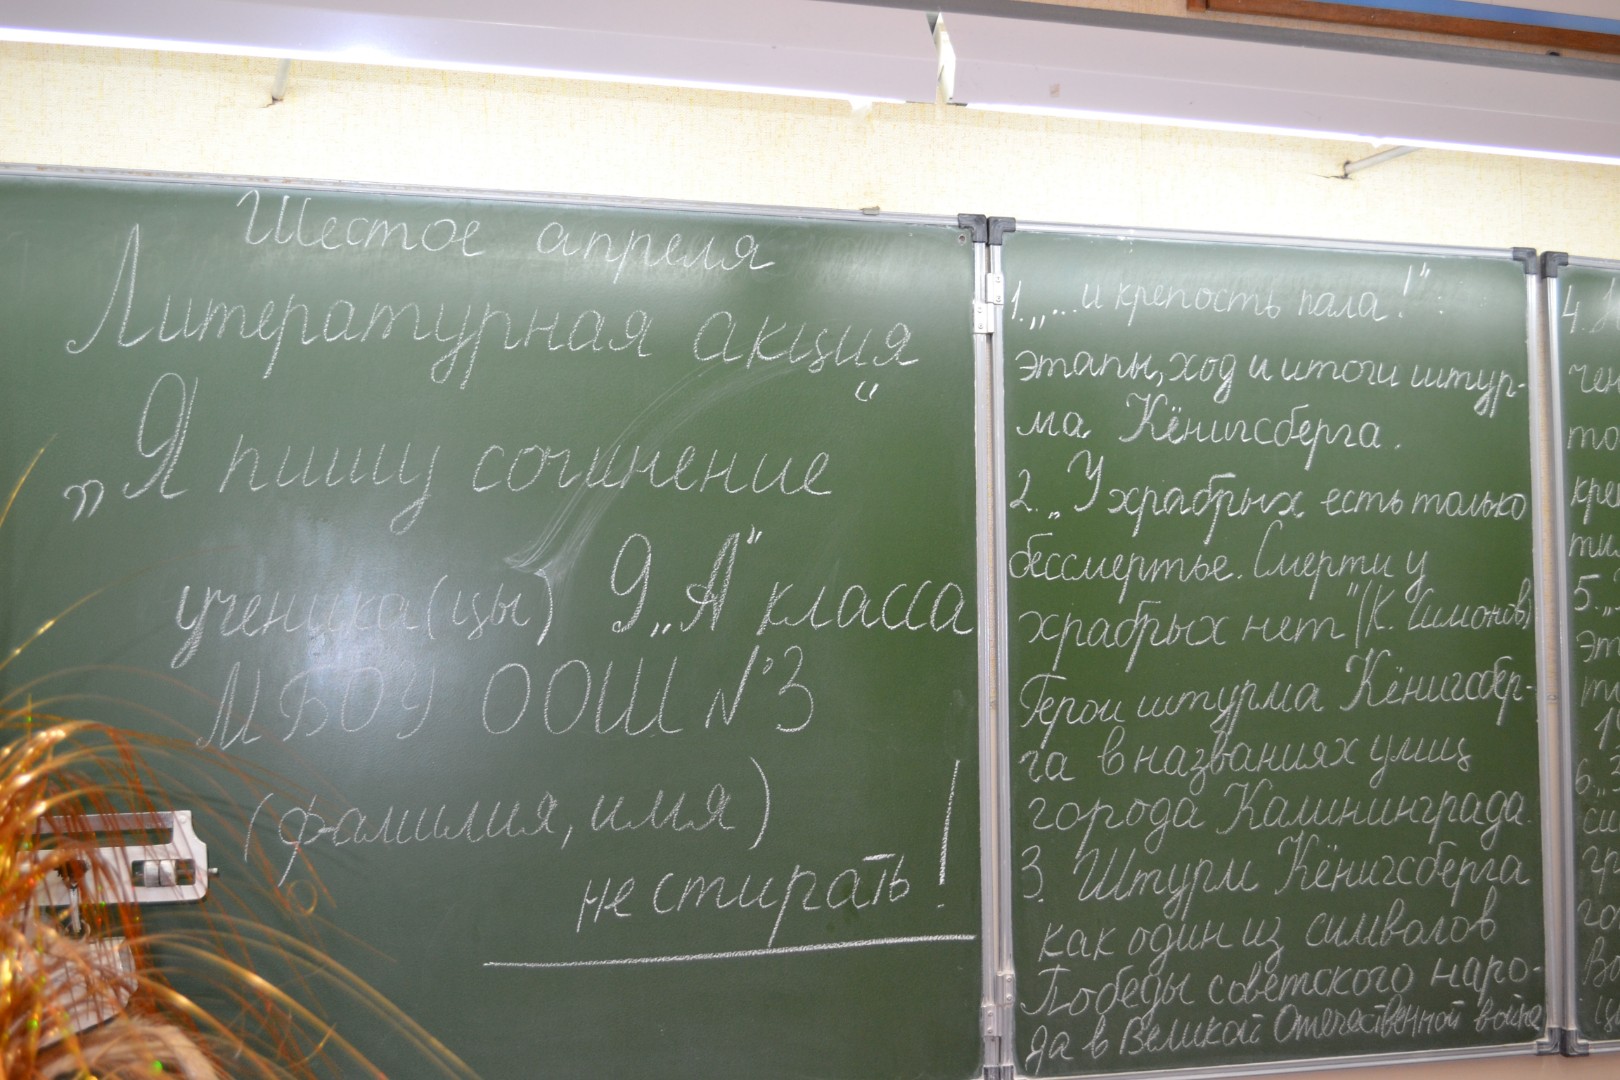 Шестое апреля
Литературная акция
„Я пишу сочинение“
ученика(цы) 9 „А“ класса
МБОУ ООШ №3
(фамилия, имя)
не стирать!
1. „...и крепость пала!“:
этапы, ход и итоги штур-
ма Кёнигсберга.
2. „У храбрых есть только
бессмертье. Смерти у
храбрых нет“ (К. Симонов)
Герои штурма Кёнигсбер-
га в названиях улиц
города Калининграда.
3. Штурм Кёнигсберга
как один из символов
Победы советского наро-
да в Великой Отечественной войне
4.
5. „
6. „